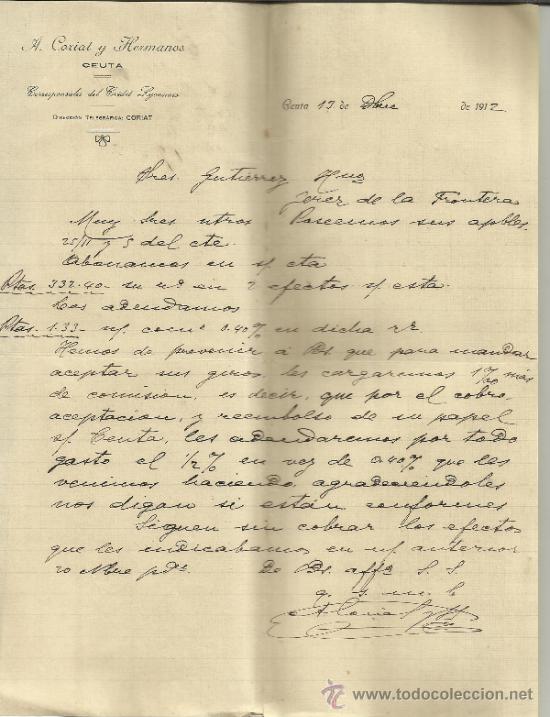 A. Coriat y Hermanos
CEUTA
Corresponsales del Crédit Lyonnais
DIRECCIÓN TELEGRÁFICA: CORIAT
Ceuta 17 de Dbre de 1912
Sres. Gutierrez Hnos
Jerez de la Frontera
Muy Sres ntros Poseemos sus apbles.
25/11 y 5 del cte.
Abonamos en s/ cta
Ptas. 332.40 - su rª en 2 efectos s/ esta
Les adeudamos
Ptas. 1.33 - n/ comon 0.40% en dicha rª
Hemos de prevenir á Vs. que para mandar
aceptar sus giros, les cargaremos 1‰ más
de comision, es decir, que por el cobro,
aceptacion, y reembolso de su papel
s/ Ceuta, les adeudaremos por todo
gasto el 1/2% en vez de 0.40% que les
venimos haciendo, agradeciendoles
nos digan si están conformes
Siguen sin cobrar los efectos
que les indicabamos en n/ anterior
20 Nbre pdo. De Vs. affmos S. S.
q. s. m. b.
www.todocoleccion.net